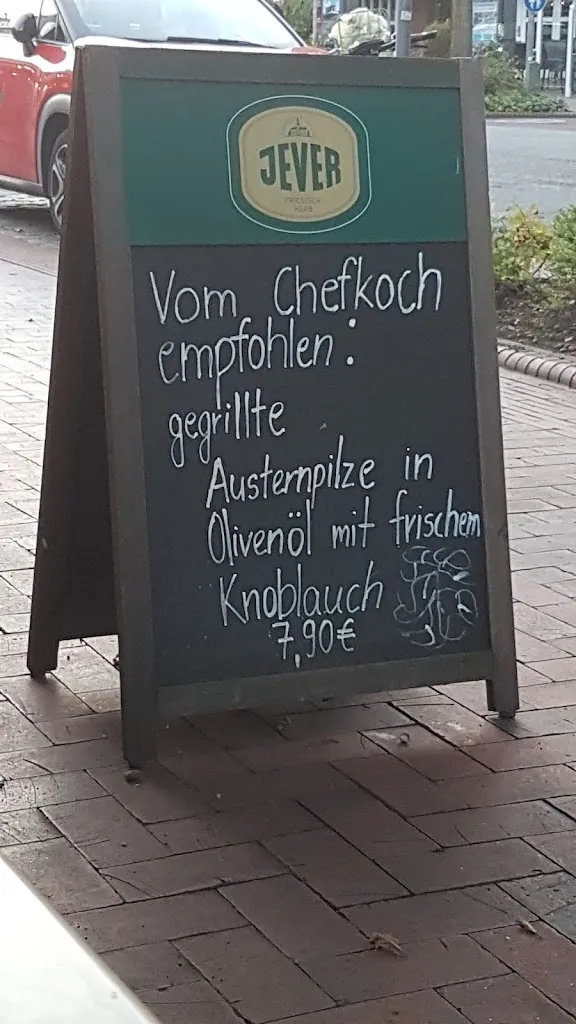 JEVER
FRIESISCH
HERB
Vom Chefkoch
empfohlen:
gegrillte
Austernpilze in
Olivenöl mit frischem
Knoblauch
7,90€